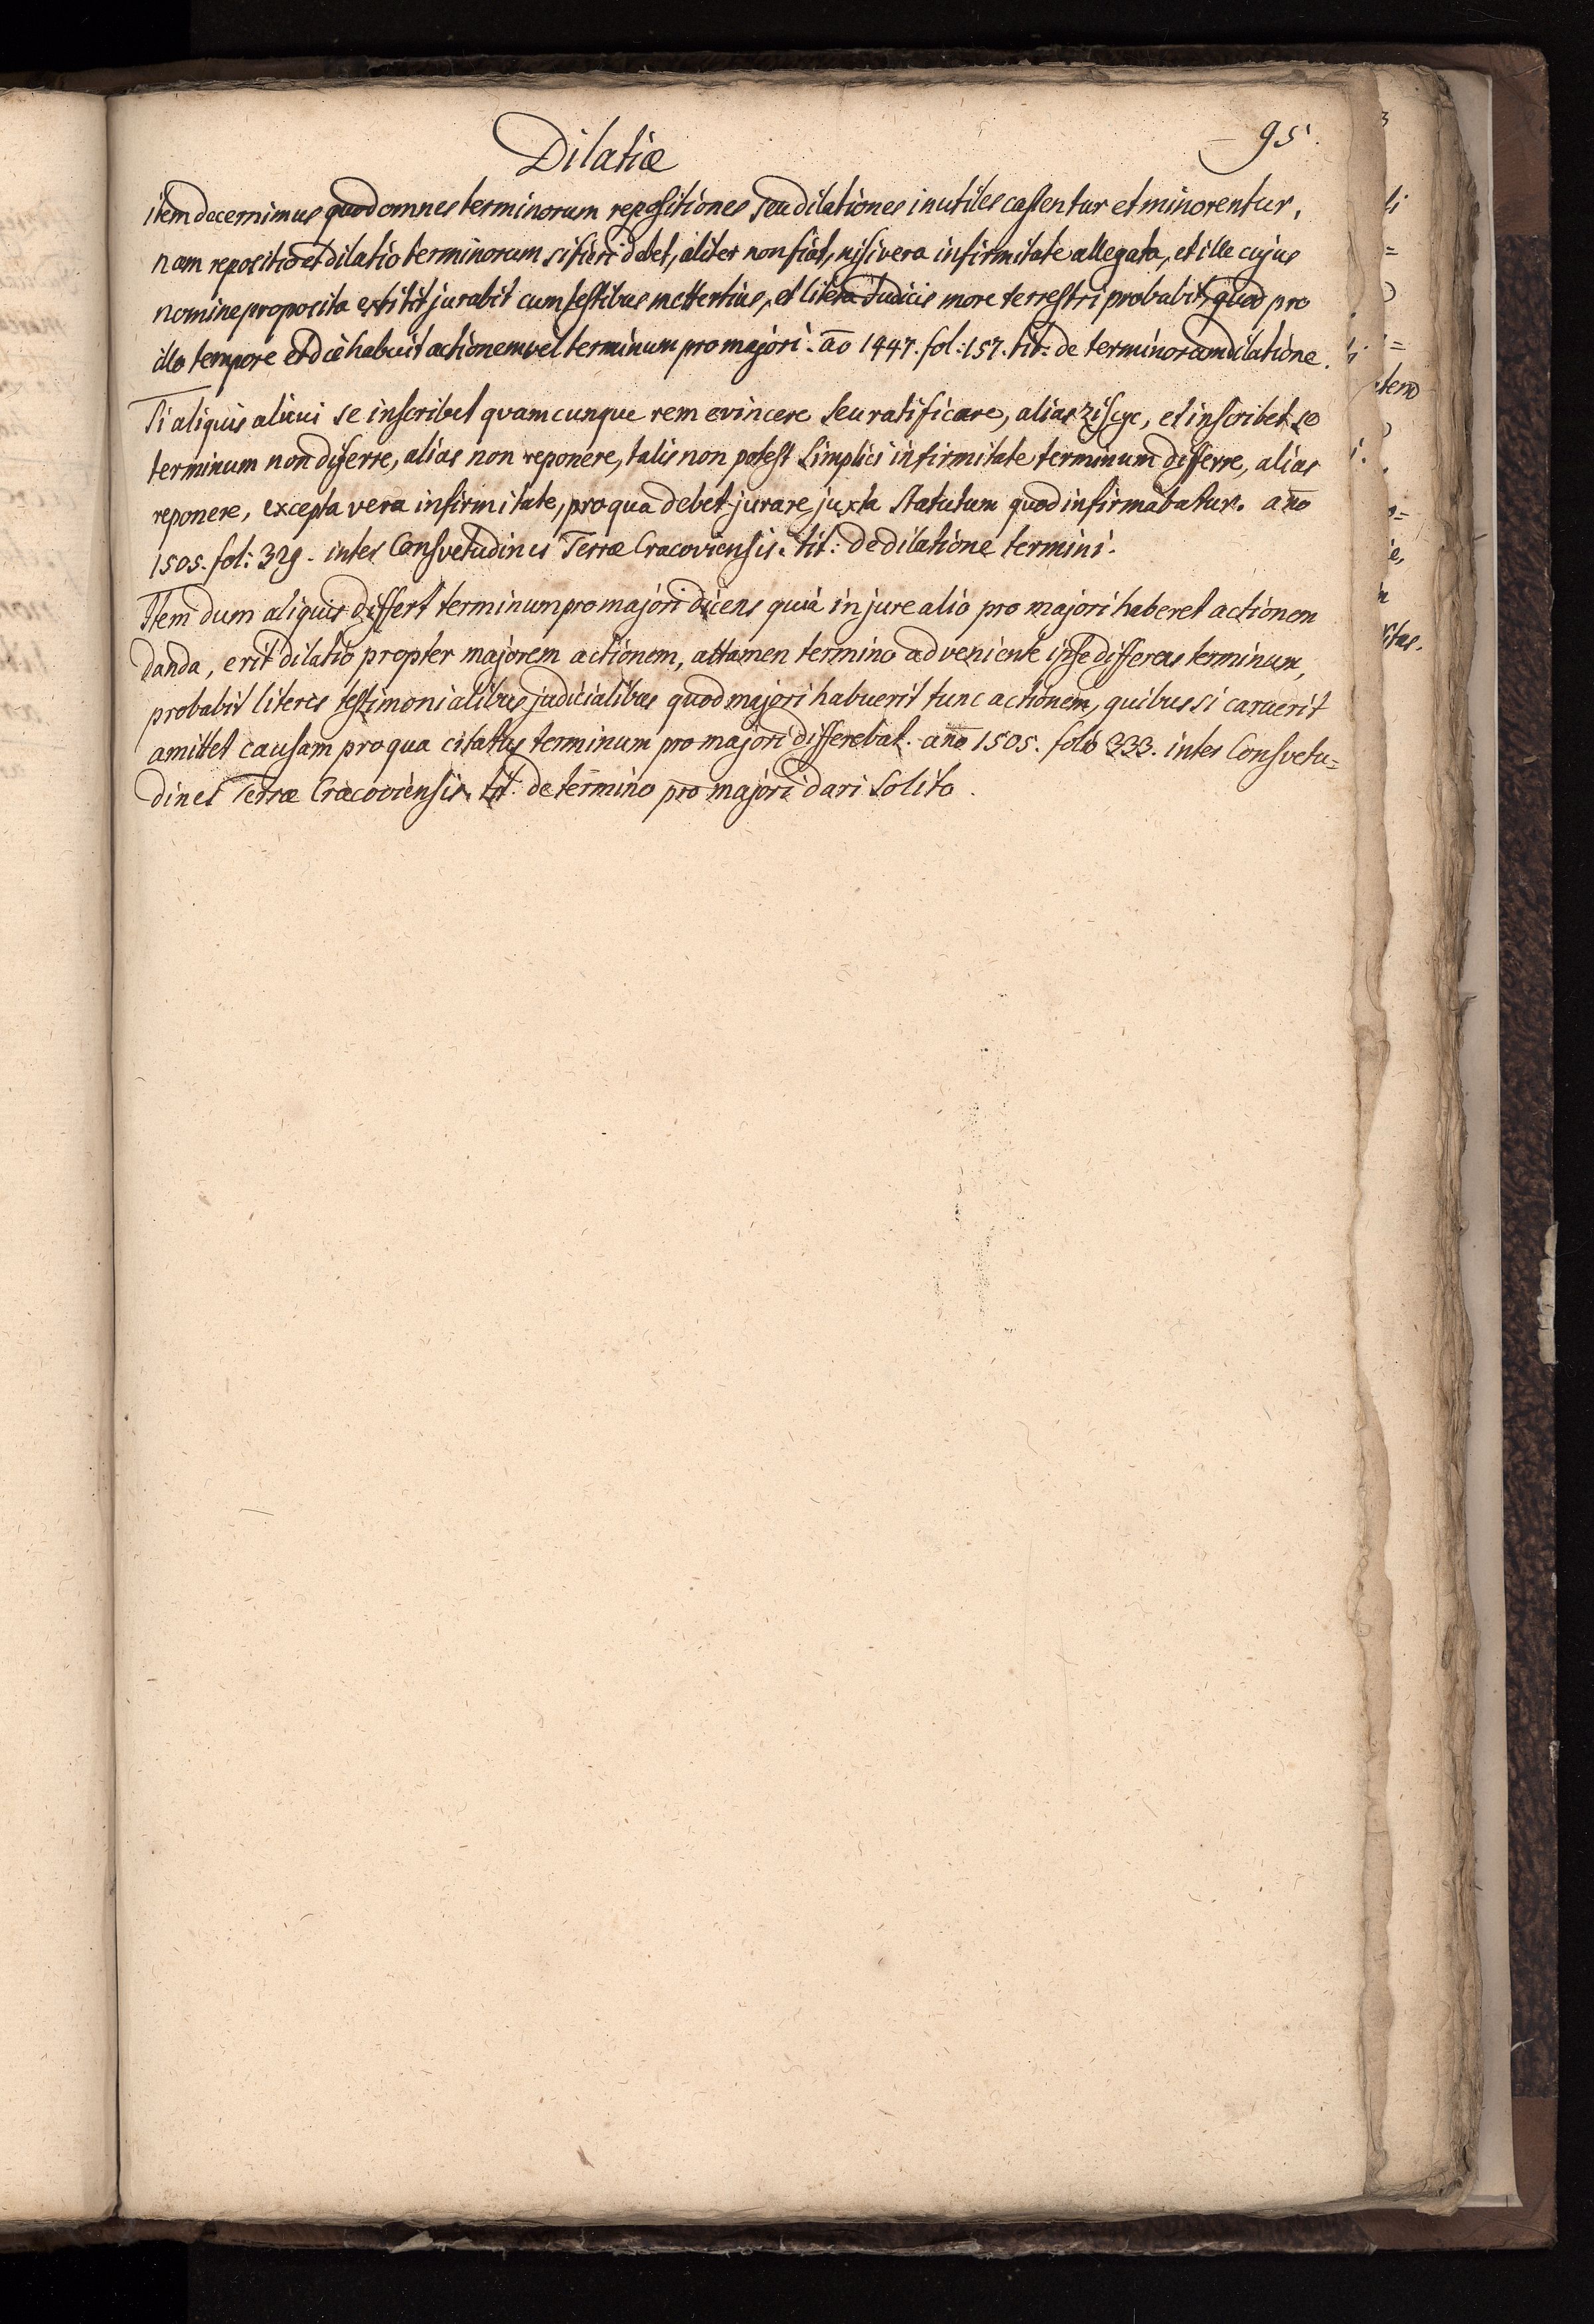 95
Dilatiæ
item decernimus quod omnes terminorum repositiones seu dilationes inutiles cassentur et minorentur,
nam repositio et dilatio terminorum si fieri debet, aliter non fiat, nisi vera infirmitate allegata, et ille cujus
nomine proposita extitit jurabit cum testibus mettertius, et litera Judicis more terrestri probabit, quod pro
illo tempore et die habuit actionem vel terminum pro majori. ao 1447. fol: 157. tit: de terminorum dilatione.
Si aliquis alicui se inscribet qvamcunque rem evincere seu ratificare, alias ziscyc, et inscribet se
terminum non differre, alias non reponere, talis non potest simplici infirmitate terminum differre, alias
reponere, excepta vera infirmitate, pro qua debet jurare juxta statutum quod infirmabatur. ano
1505. fol: 329. inter Consvetudines Terræ Cracoviensis. tit: de dilatione termini.
Item dum aliquis differt terminum pro majori dicens quia in jure alio pro majori haberet actionem
danda, erit dilatio propter majorem actionem, attamen termino adveniente ipse differens terminum,
probabit literis testimonialibus judicialibus quod majori habuerit tunc actionem, quibus si caruerit
amittet causam pro qua citatus terminum pro majori differebat. ano 1505. folio 333. inter Consvetu=
dines Terræ Cracoviensis. tit. de termino pro majori dari solito.